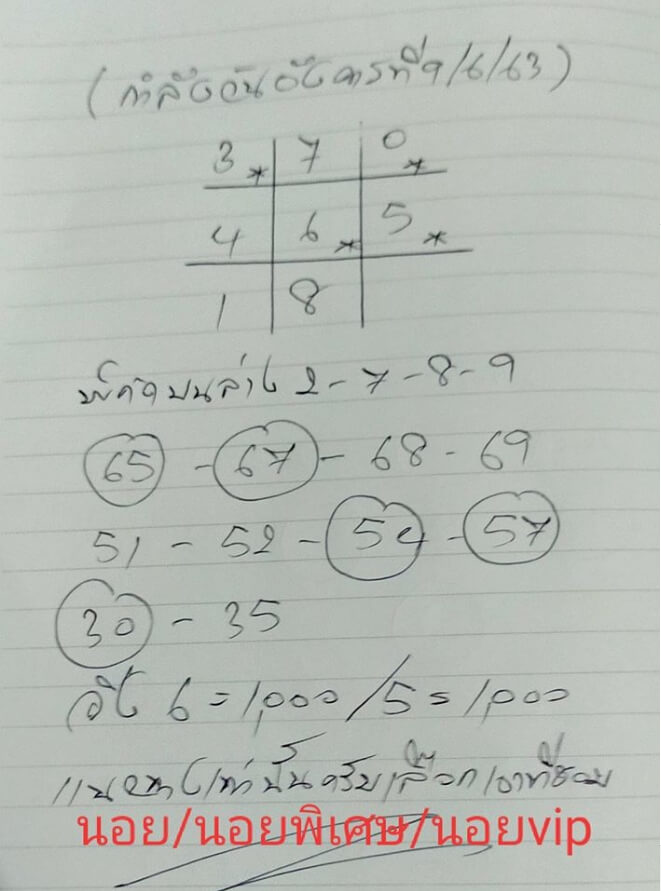 (กำลังวันอังคารที่9/6/63)
3* 7 0*
4 6* 5*
1 8
พิกัดบนล่าง 2-7-8-9
65 - 67 - 68 - 69
51 - 52 - 54 - 57
30 - 35
วิ่ง 6 = 1,000 / 5 = 1,000
แนวทางเท่านั้นครับเลือกเอาที่ชอบ
นอย/นอยพิเศษ/นอยvip